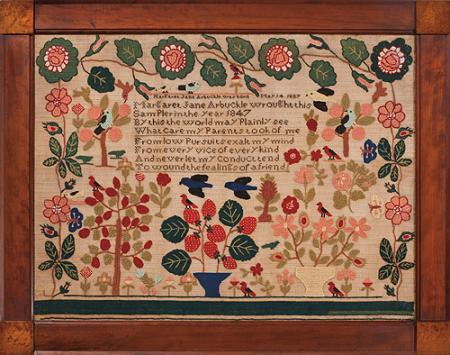 Margaret Jane Arbuckle was born May 14 1837
Margaret Jane Arbuckle wrought this
Sampler in the year 1847
By this the world may Plainly see
What care my Parents took of me
From low Pursuits exalt my mind
From every vice of every kind
And never let my conduct tend
To wound the fealings of a friend